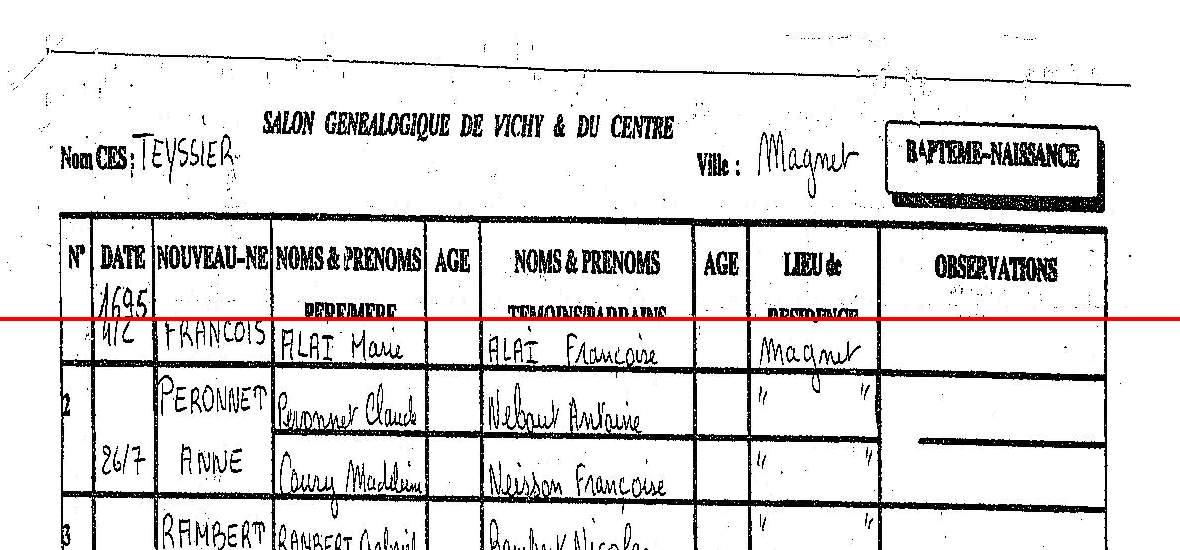 SALON GENEALOGIQUE DE VICHY & DU CENTRE
Nom CES: TEYSSIER Ville : Magnet BAPTEME-NAISSANCE
N° DATE NOUVEAU-NE NOMS & PRENOMS AGE NOMS & PRENOMS AGE LIEU de OBSERVATIONS
1695 PERE/MERE TEMOINS/PARRAINS RESIDENCE
FRANCOIS ALAI Marie ALAI Françoise Magnet
2 PERONNET Peronnet Claude Nebout Antoine " "
26/7 ANNE Coury Madeleine Neisson Françoise " "
3 RAMBERT RAMBERT Rambert Nicolas " "